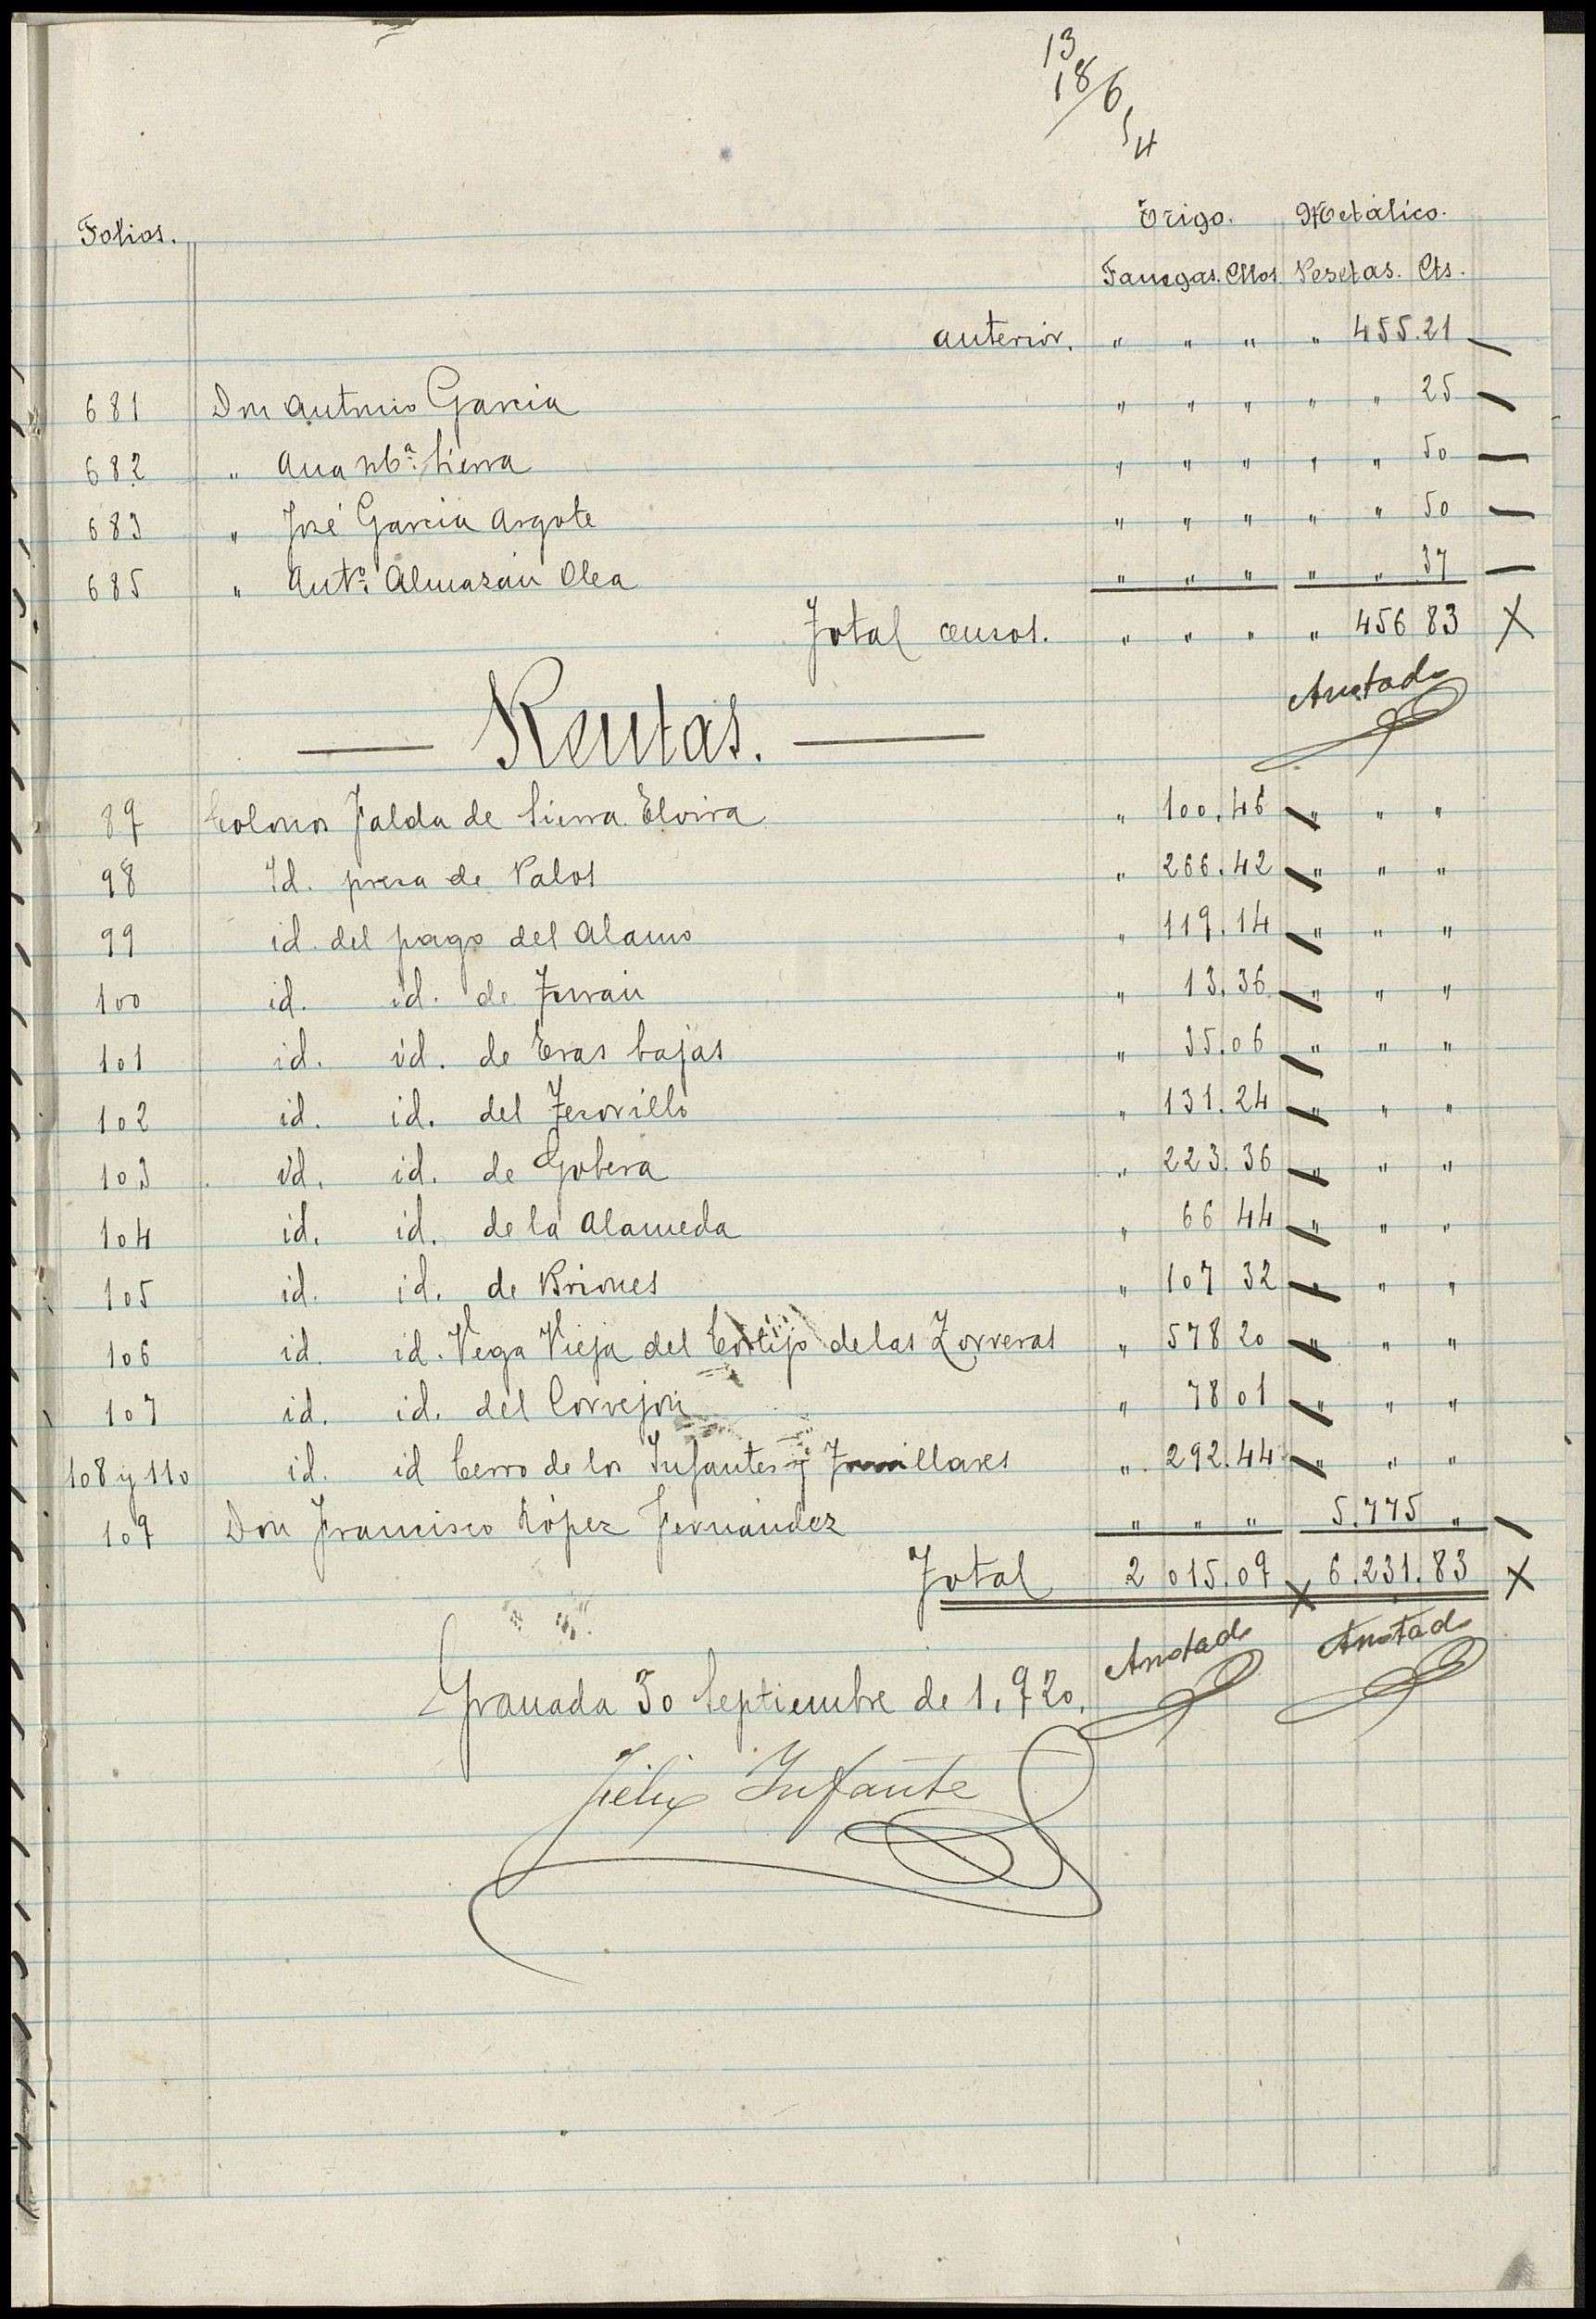 13
18/6
54
Folios. Trigo. Metálico.
Fanegas. Cllos. Pesetas. Cts.
anterior. " " " " 455.21
681 Don Antonio Garcia " " " " " 25
682 " Ana Mª. Sierra " " " " " 50
683 " José Garcia Argote " " " " " 50
685 " Antº. Almazán Olea " " " " " 37
Total censos. " " " " 456 83 X
Anotado
— Rentas. —
87 Colonos Falda de Sierra Elvira " 100.46 " " "
98 Id. presa de Palos " 266.42 " " "
99 id. del pago del Alamo " 119.14 " " "
100 id. id. de " 13.36 " " "
101 id. id. de Eras bajas " 35.06 " " "
102 id. id. del Tesorillo " 131.24 " " "
103 id. id. de Gobera " 223.36 " " "
104 id. id. de la Alameda " 66 44 " " "
105 id. id. de Briones " 107 32 " " "
106 id. id. Vega Vieja del Cortijo de las Zorreras " 578 20 " " "
107 id. id. del Corvejon " 78 01 " " "
108 y 110 id. id Cerro de los Infantes y " 292.44 " " "
109 Don Francisco López Fernández " " " 5.775 "
Total 2 015.09 X 6.231.83 X
Anotado Anotado
Granada 30 Septiembre de 1.920.
Félix Infante